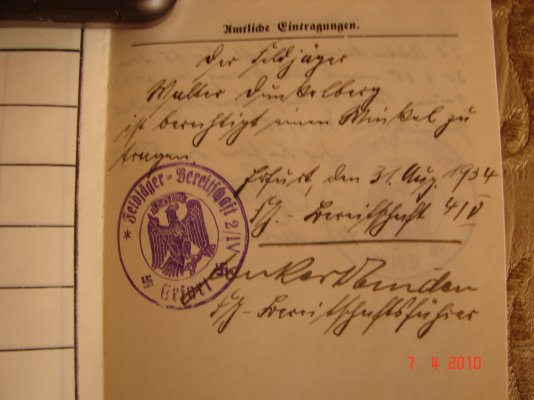 Amtliche Eintragungen.
Der Feldjäger
Walter Dunkelberg
ist berechtigt einen Winkel zu
tragen.
Erfurt, den 31. Aug. 1934
FJ.-Bereitschaft 4/V
* Feldjäger-Bereitschaft 2/IV *
Erfurt
FJ-Bereitschaftsführer
7 4 2010